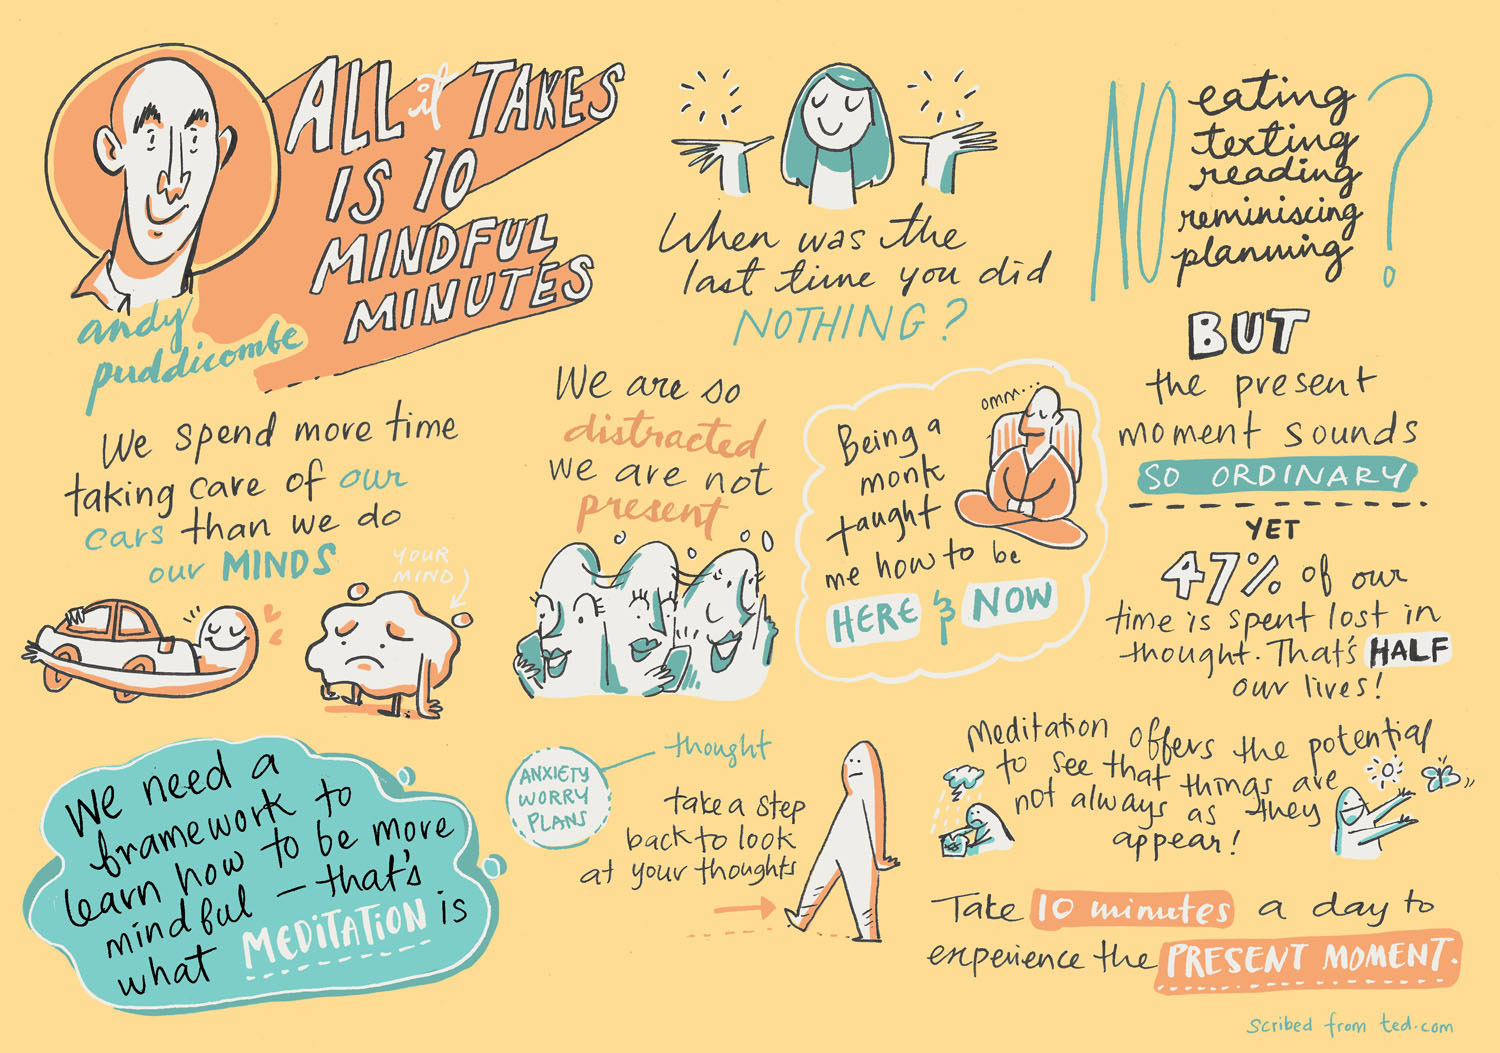 ALL it TAKES
IS 10
MINDFUL
MINUTES
andy
puddicombe
When was the
last time you did
NOTHING?
NO
eating
texting
reading
reminiscing
planning
?
BUT
the present
moment sounds
SO ORDINARY
YET
47% of our
time is spent lost in
thought. That's HALF
our lives!
We spend more time
taking care of our
cars than we do
our MINDS
YOUR
MIND
We are so
distracted
we are not
present
omm...
Being a
monk
taught
me how to be
HERE & NOW
We need a
framework to
learn how to be more
mindful – that's
what MEDITATION is
ANXIETY
WORRY
PLANS
thought
take a step
back to look
at your thoughts
Meditation offers the potential
to see that things are
not always as they
appear!
Take 10 minutes a day to
experience the PRESENT MOMENT.
scribed from ted.com